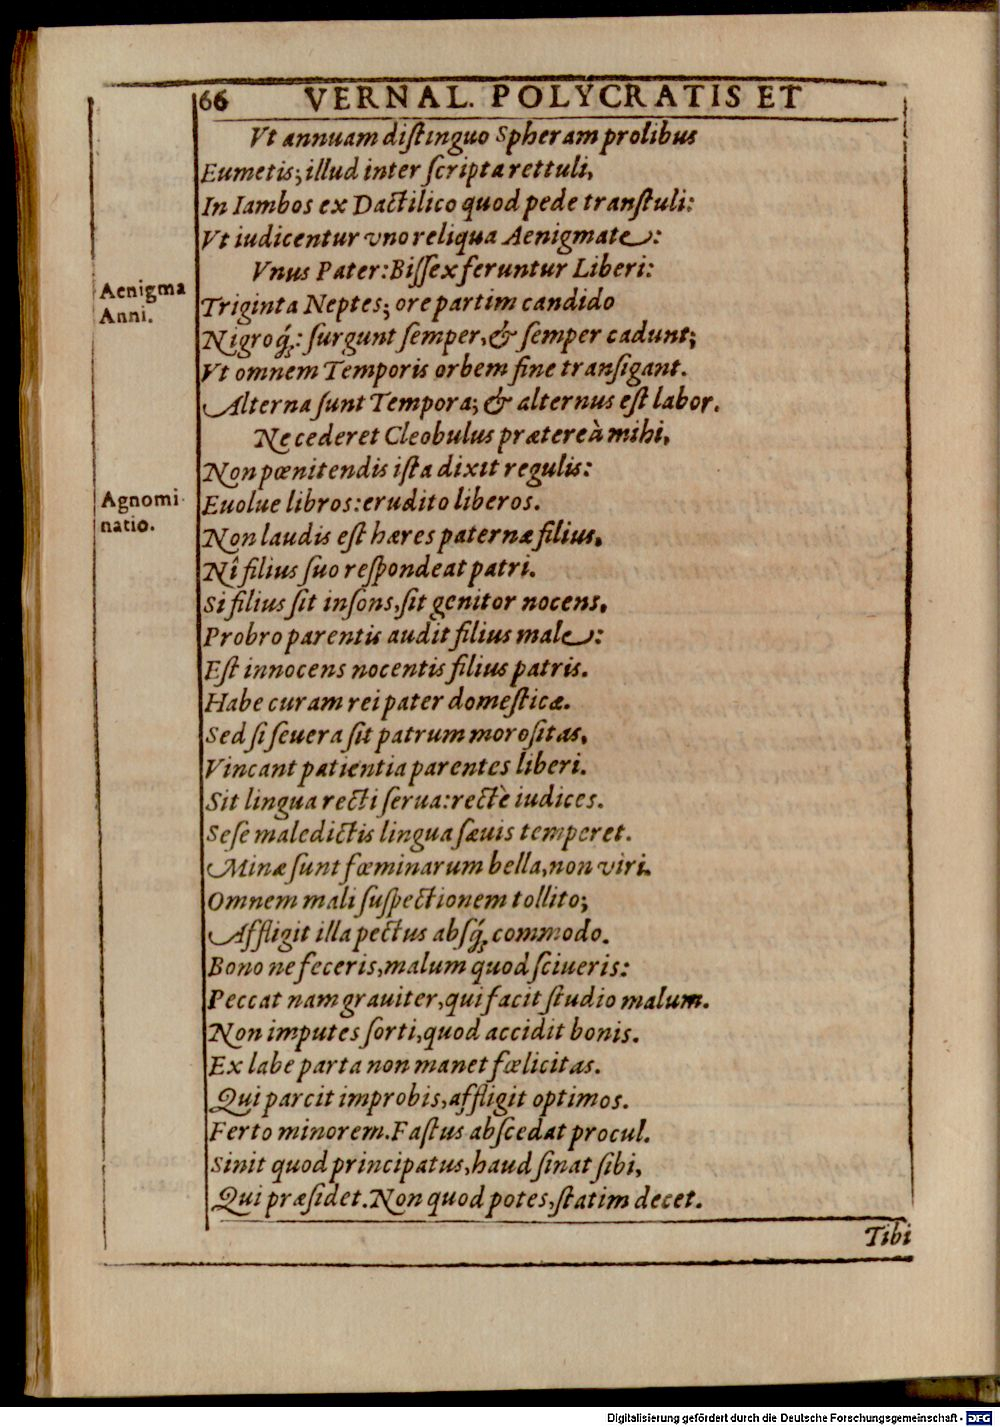 66 VERNAL. POLYCRATIS ET
Vt annuam diſtinguo Spheram prolibus
Eumetis; illud inter ſcripta rettuli,
In Iambos ex Dactilico quod pede tranſtuli:
Vt iudicentur vno reliqua Aenigmate:
Aenigma
Anni.
Vnus Pater: Biſſex feruntur Liberi:
Triginta Neptes; ore partim candido
Nigroq́;: ſurgunt ſemper, & ſemper cadunt;
Vt omnem Temporis orbem fine tranſigant.
Alterna ſunt Tempora; & alternus eſt labor.
Ne cederet Cleobulus prætereà mihi,
Non pœnitendis iſta dixit regulis:
Agnomi
natio.
Euolue libros: erudito liberos.
Non laudis eſt hæres paternæ filius,
Nî filius ſuo reſpondeat patri.
Si filius ſit inſons, ſit genitor nocens,
Probro parentis audit filius male:
Eſt innocens nocentis filius patris.
Habe curam rei pater domeſticæ.
Sed ſi ſeuera ſit patrum moroſitas,
Vincant patientia parentes liberi.
Sit lingua recti ſerua: rectè iudices.
Seſe maledictis lingua ſæuis temperet.
Minæ ſunt fœminarum bella, non viri.
Omnem mali ſuſpectionem tollito;
Affligit illa pectus abſq́; commodo.
Bono ne feceris, malum quod ſciueris:
Peccat nam grauiter, qui facit ſtudio malum.
Non imputes ſorti, quod accidit bonis.
Ex labe parta non manet fœlicitas.
Qui parcit improbis, affligit optimos.
Ferto minorem. Faſtus abſcedat procul.
Sinit quod principatus, haud ſinat ſibi,
Qui præſidet. Non quod potes, ſtatim decet.
Tibi
Digitalisierung gefördert durch die Deutsche Forschungsgemeinschaft - DFG